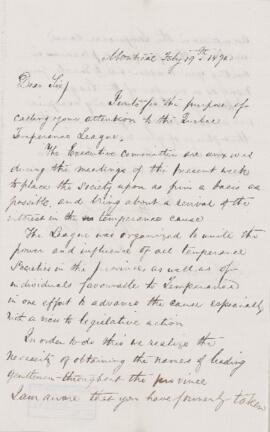 Montreal Feby 19th 1890
Dear Sir
I write for the purpose of
calling your attention to the Quebec
Temperance League.
The Executive Committee are anxious
during the meetings of the present week
to place the society upon as firm a basis as
possible, and bring about a revival of the
interest in the temperance cause
The League was organized to unite the
power and influence of all temperance
Societies in the province, as well as of
individuals favourable to Temperance
in one effort to advance the cause especially
with a view to legislative action
In order to do this we realize the
necessity of obtaining the names of leading
gentlemen throughout the province
I am aware that you have formerly taken